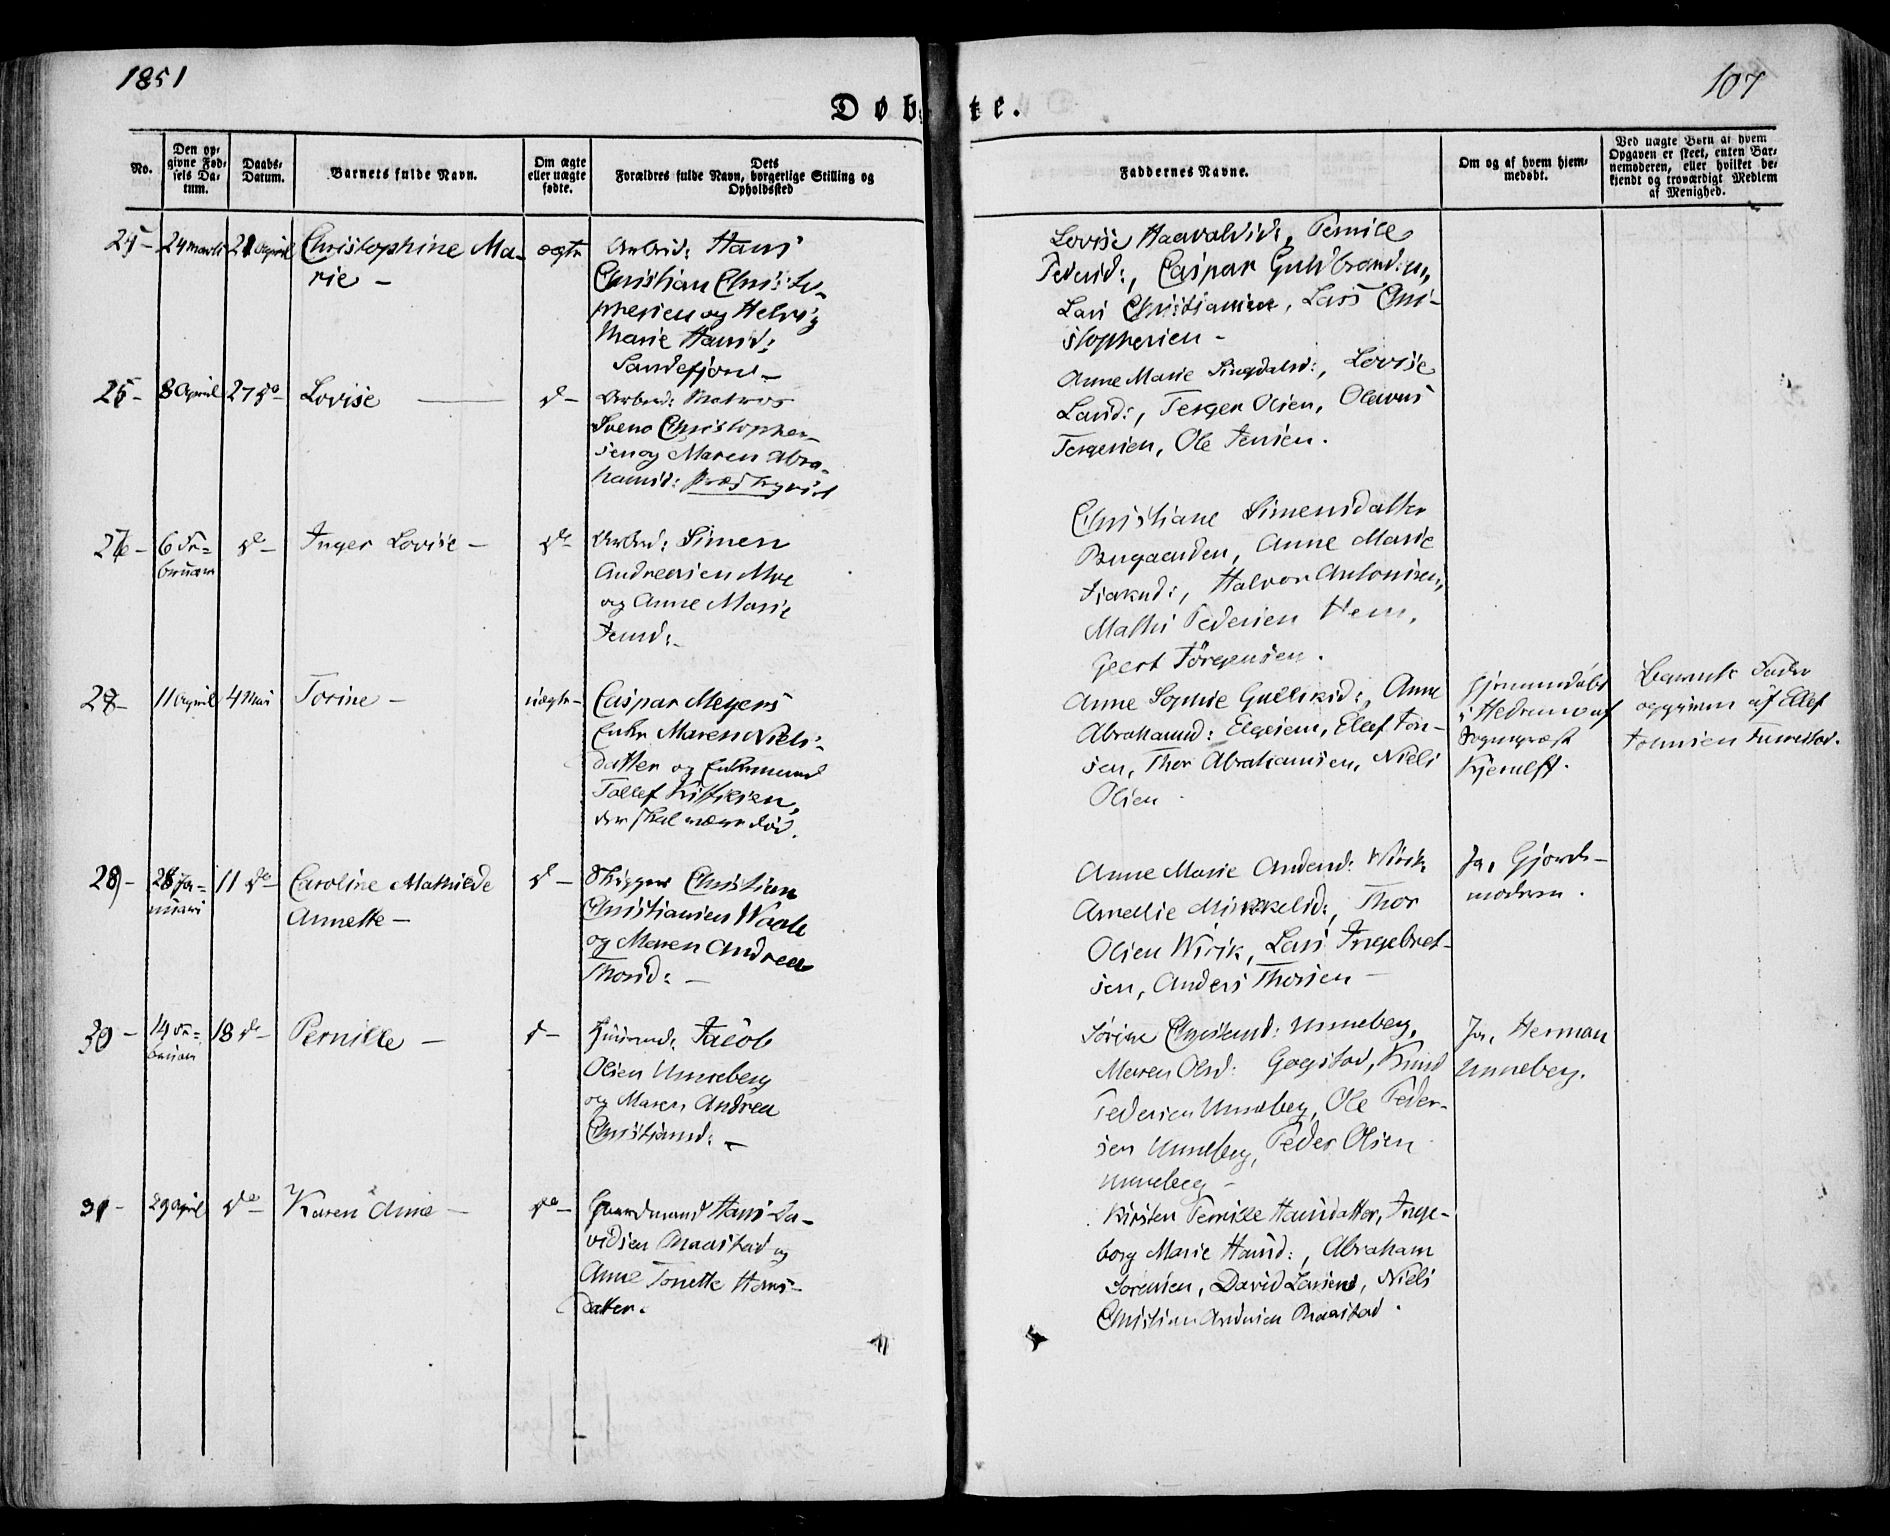 1851
107
Døbte.
No.
Den op-
givne Fød-
sels Da-
tum.
Daabs-
Datum.
Barnets fulde Navn.
Om ægte
eller uægte
fødte.
Dets
Forældres fulde Navn, borgerlige Stilling og
Opholdssted
Faddernes Navne.
Om og af hvem hjem-
medøbt.
Ved uægte Børn af hvem
Opgaven er skeet, enten Bar-
nemoderen, eller hvilket be-
kjendt og troværdigt Medlem
af Menighed.
24 Marts
21 April
Christophine Ma-
rie -
ægte
Arbeid: Hans
Christian Christo-
phersen og Helvig
Marie Hansd:
Sandefjord -
Lovise Haavaldsd:, Pernille
Pedersd:, Caspar Guldbrandsen,
Lars Christiansen, Lars Chri-
stophersen -
8 April
27 do
Lovise
d -
Arbeid: Matros
Svend Christopher-
sen og Maren Abra-
hamsd:
Anne Marie Lovise
Larsd:, Terger Olsen, Olavus
Tergersen, Ole Jensen.
6 Fe-
bruar
de -
Inger Lovise -
de
Arbeid: Simen
Andreasen Moe
og Anne Marie
Jensd: -
Christiane Simensdatter
Bugaarden, Anne Marie
Isaksd:, Halvor Antonisen,
Mathis Pedersen Hem,
Geert Jörgensen.
28
11 April
4 Mai
Torine -
uægte -
Caspar Meyers
Enke Maren Niels-
datter og Enkemand
Tollef
der skal være død.
Anne Sophie Gulliksd:, Anne
Abrahamsd: Elgesem, Ellef Jon-
sen, Thor Abrahamsen, Niels
Olsen
Hjemmedöbt
i Hedrum af
Sogneprest
Kjerulff.
Barnets Fader
opgiven af Ellef
29 -
28 Ja-
nuari
11 de -
Caroline Mathilde
Annette -
d -
Skipper Christian
Christiansen
og Maren Andrea
Thorsd: -
Anne Marie Andersd: Virik,
Amellie Mikkelsd:, Thor
Olsen Wirik, Lars Ingebret-
sen, Anders Thorsen -
Ja, Gjord-
moderen.
30 -
14 Fe-
bruar
18 de -
Pernille -
d -
Huusmd: Jacob
Olsen Unneberg
og Maren Andrea
Christiansd: -
Sörine Unneberg,
Maren Olsd: Gogstad, Knud
Pedersen Unneberg, Ole Peder-
sen Unneberg, Peder Olsen
Unneberg -
Ja, Herman
Unneberg.
31 -
29 April
de -
Karen Anne -
de -
Gaardmand Hans Da-
vidsen Raastad og
Anne Tonette Hans-
datter.
Kirsten Pernille Hansdatter, Inge-
borg Marie Hansd:, Abraham
Sorensen, David Larsen, Niels
Christian Andersen Raastad.